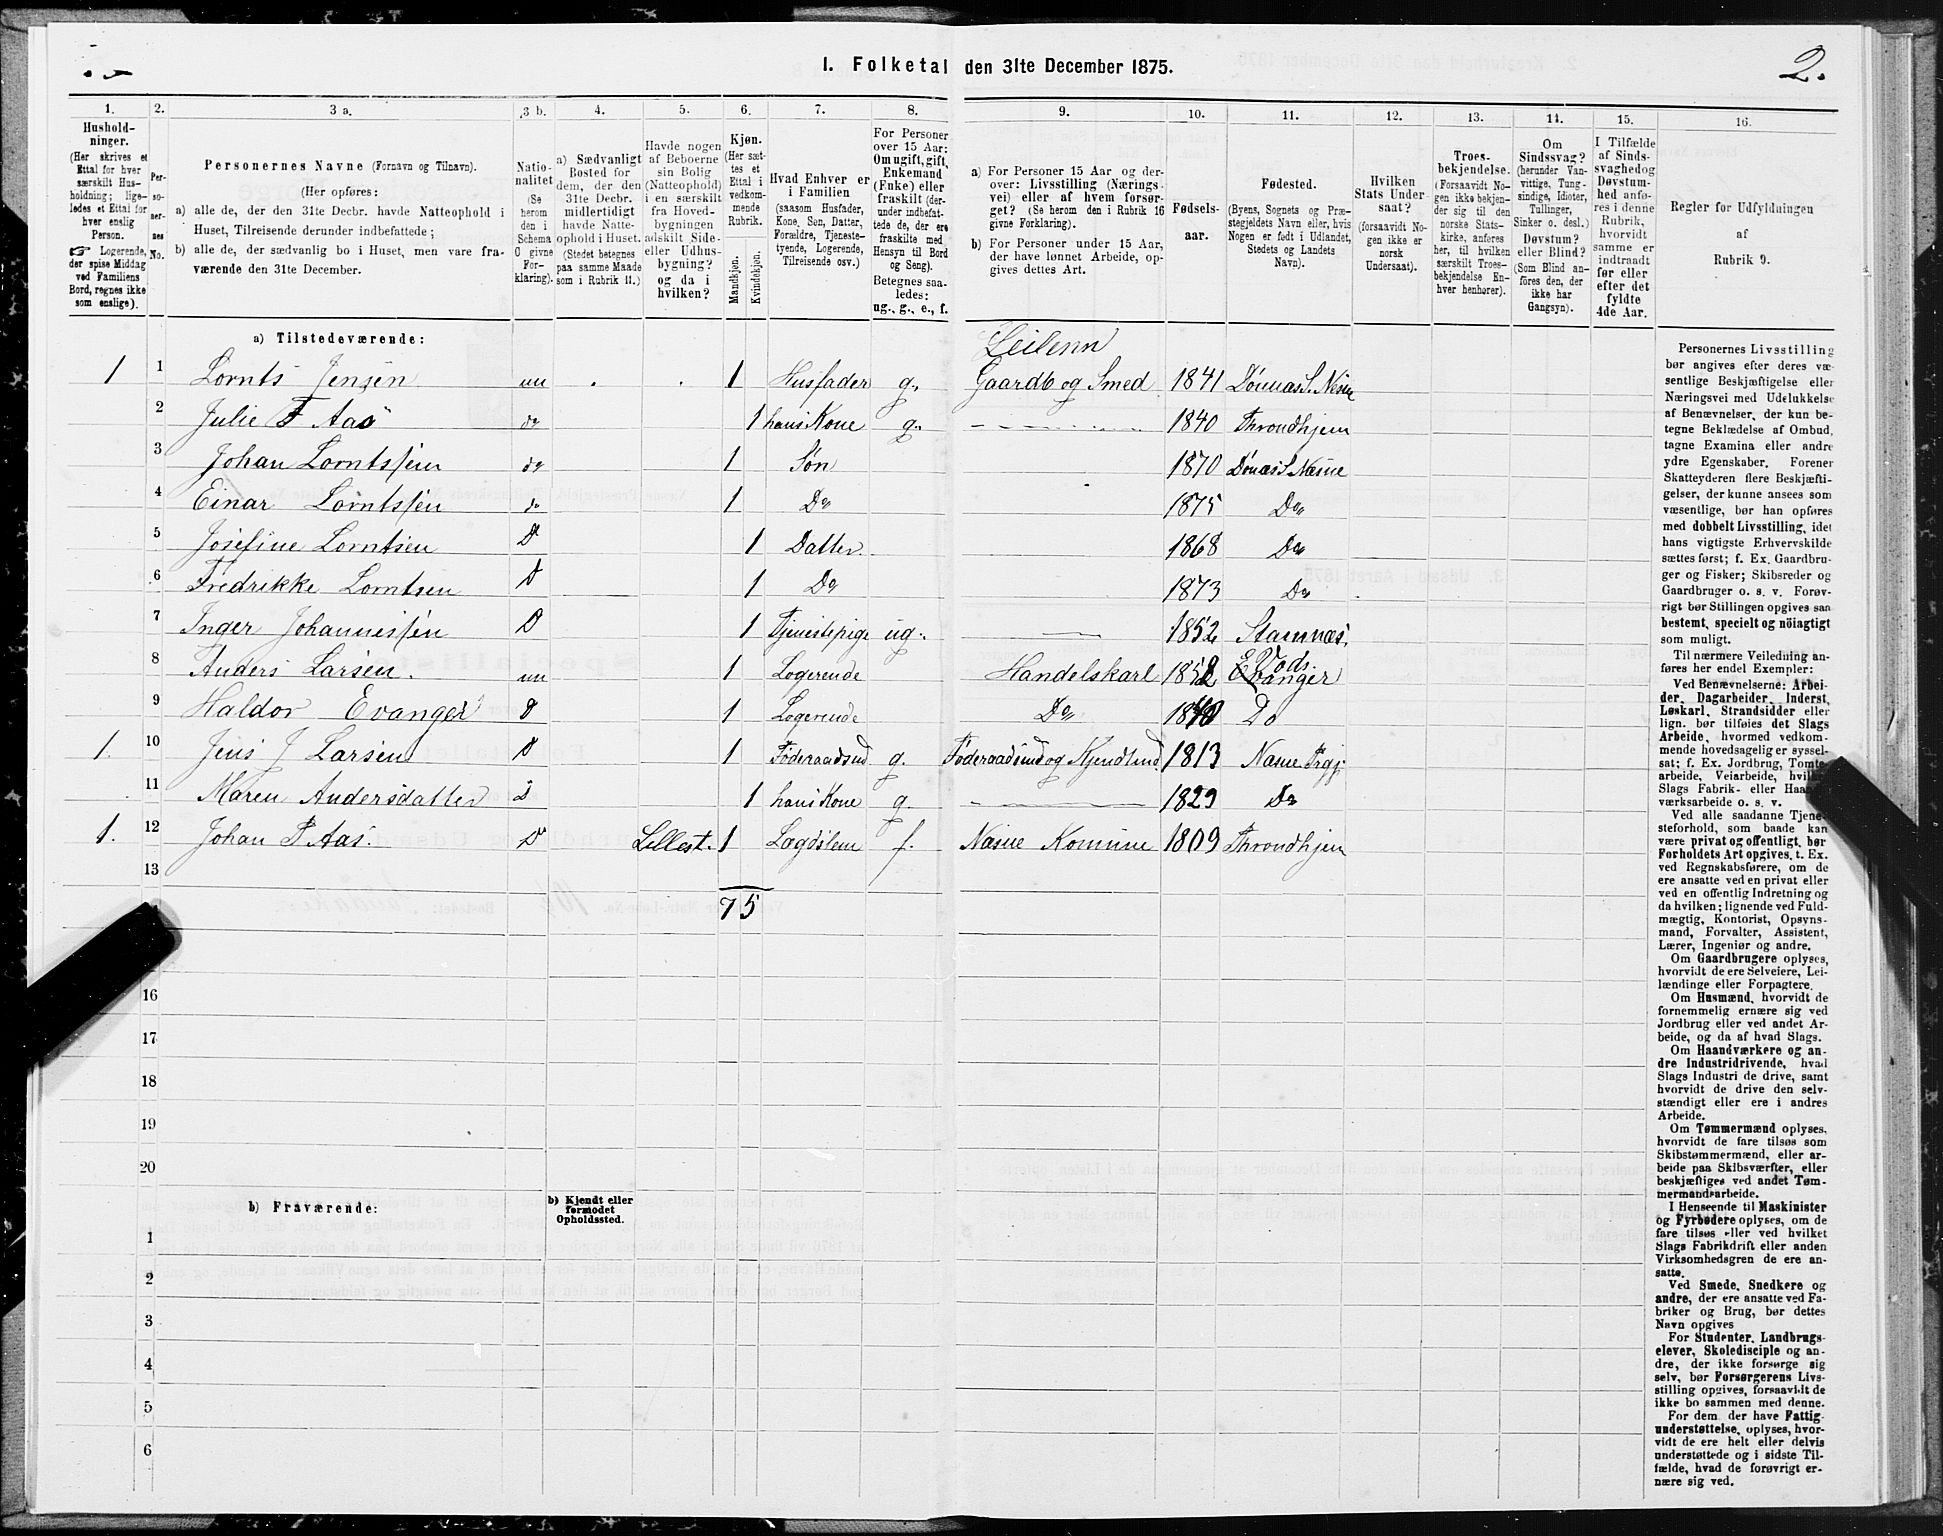 I. Folketal den 31te December 1875.
2.
1.
2.
3 a.
3 b.
4.
5.
6.
7.
8.
9.
10.
11.
12.
13.
14.
15.
16.
Hushold-
ninger.
(Her skrives et
Ettal for hver
særskilt Hus-
holdning; lige-
ledes et Ettal for
hver enslig
Person.
☞ Logerende,
der spise Middag
ved Familiens
Bord, regnes ikke
som enslige).
Per-
so-
ner-
nes
No.
Personernes Navne (Fornavn og Tilnavn).
(Her opføres:
a) alle de, der den 31te Decbr. havde Natteophold i
Huset, Tilreisende derunder indbefattede;
b) alle de, der sædvanlig bo i Huset, men vare fra-
værende den 31te December.
Natio-
nalitet
(Se
herom
den i
Schema
C givne
For-
klaring).
a) Sædvanligt
Bosted for
dem, der den
31te Decbr.
midlertidigt
havde Natte-
ophold i Huset.
(Stedet betegnes
paa samme Maade
som i Rubrik 11.)
Havde nogen
af Beboerne
sin Bolig
(Natteophold)
i en særskilt
fra Hoved-
bygningen
adskilt Side-
eller Udhus-
bygning?
og da i
hvilken?
Kjøn.
(Her sæt-
tes et
Ettal i
vedkom-
mende
Rubrik.
Mandkjøn.
Kvindekjøn.
Hvad Enhver er
i Familien
(saasom Husfader,
Kone, Søn, Datter,
Forældre, Tjeneste-
tyende, Logerende,
Tilreisende osv.)
For Personer
over 15 Aar:
Om ugift, gift,
Enkemand
(Enke) eller
fraskilt (der-
under indbefat-
tede de, der ere
fraskilte med
Hensyn til Bord
og Seng).
Betegnes saa-
ledes:
ug., g., e., f.
a) For Personer 15 Aar og der-
over: Livsstilling (Nærings-
vei) eller af hvem forsør-
get? (Se herom den i Rubrik 16
givne Forklaring).
b) For Personer under 15 Aar,
der have lønnet Arbeide, op-
gives dettes Art.
Fødsels-
aar.
Fødested.
(Byens, Sognets og Præ-
stegjeldets Navn eller, hvis
Nogen er født i Udlandet,
Stedets og Landets
Navn).
Hvilken
Stats Under-
saat?
(forsaavidt No-
gen ikke er
norsk
Undersaat).
Troes-
bekjendelse.
(Forsaavidt No-
gen ikke bekjen-
der sig til den
norske Stats-
kirke, anføres
her, til hvilken
særskilt Troes-
bekjendelse En-
hver henhører).
Om
Sindssvag?
(herunder Van-
vittige, Tung-
sindige, Idioter,
Tullinger,
Sinker o. desl.)
Døvstum?
eller Blind?
(Som Blind an-
føres den, der
ikke har
Gangsyn).
I Tilfælde
af Sinds-
svaghedog
Døvstum-
hed anfø-
res i denne
Rubrik,
hvorvidt
samme er
indtraadt
før eller
efter det
fyldte
4de Aar.
Regler for Udfyldningen
af
Rubrik 9.
a) Tilstedeværende:
Leilenn
1 1 Lornts Jensen nn 1 Husfader g. Gaardb og Smed 1841 Dønnas S. Nesne
2 Julie F Aas do 1 hans Kone g. 1840 Throndhjem
3 Johan Lorntssen do 1 Søn 1870 Dønæs S Næsne
4 Einar Lorntssen do 1 Do 1875 Do
5 Josefine Lorntsen D 1 Datter 1868 Do
6 Fredrikke Lorntsen D 1 Do 1873 Do
7 Inger Johannessen D 1 Tjenestepige ug. 1852 Stamnæs.
8 Anders Larsen. nn 1 Logerende Handelskarl Vods Evanger
9 Haldor Evanger D 1 Logerende Do Do
1. 10 Jens J Larsen D 1 Føderaadsmd g. Føderaadsmd og 1813 Næsne Prgj
11 Maren Andersdatter D 1 hans Kone g. 1829 Do
1. 12 Johan P Aas. D Lillest. 1 Lægdslem f. Næsne Komune 1809 Throndhjem
13
7 5
16
17
18
19
20
b) Fraværende:
b) Kjendt eller
formodet
Opholdssted.
1
2
3
4
5
6
Personernes Livsstilling
bør angives efter deres væ-
sentlige Beskjæftigelse eller
Næringsvei med Udelukkelse
af Benævnelser, der kun be-
tegne Beklædelse af Ombud,
tagne Examina eller andre
ydre Egenskaber. Forener
Skatteyderen flere Beskjæfti-
gelser, der kunne ansees som
væsentlige, bør han opføres
med dobbelt Livsstilling, idet
hans vigtigste Erhvervskilde
sættes først; f. Ex. Gaardbru-
ger og Fisker; Skibsreder og
Gaardbruger o. s. v. Forøv-
rigt bør Stillingen opgives saa
bestemt, specielt og nöiagtigt
som muligt.
Til nærmere Veiledning an-
føres her endel Exempler:
Ved Benævnelserne: Arbei-
der, Dagarbeider, Inderst,
Løskarl, Strandsidder eller
lign. bør tilføies det Slags
Arbeide, hvormed vedkom-
mende hovedsagelig er syssel-
sat; f. Ex. Jordbrug, Tomte-
arbeide, Veiarbeide, hvilket
Slags Fabrik- eller Haand-
værksarbeide o. s. v.
Ved alle saadanne Tjene-
steforhold, som baade kan
være privat og offentligt, bør
Forholdets Art opgives, t. Ex.
ved Regnskabsførere, om de
ere ansatte ved en privat eller
ved en offentlig Indretning og
da hvilken; lignende ved Fuld-
mægtig, Kontorist, Opsyns-
mand, Forvalter, Assistent,
Lærer, Ingeniør og andre.
Om Gaardbrugere oplyses,
hvorvidt de ere Selveiere, Lei-
lændinge eller Forpagtere.
Om Husmænd, hvorvidt de
fornemmelig ernære sig ved
Jordbrug eller ved andet Ar-
beide, og da af hvad Slags.
Om Haandværkere og an-
dre Industridrivende, hvad
Slags Industri de drive, samt
hvorvidt de drive den selv-
stændigt eller ere i andres
Arbeide.
Om Tømmermænd oplyses,
hvorvidt de fare tilsøs som
Skibstømmermænd, eller ar-
beide paa Skibsværfter, eller
beskjæftiges ved andet Tøm-
mermandsarbeide.
I Henseende til Maskinister
og Fyrbødere oplyses, om de
fare tilsøs eller ved hvilket
Slags Fabrikdrift eller anden
Virksomhedsgren de ere an-
satte.
Ved Smede, Snedkere og
andre, der ere ansatte ved Fa-
briker og Brug, bør dettes
Navn opgives
For Studenter, Landbrugs-
elever, Skoledisciple og an-
dre, der ikke forsørge sig
selv, bør Forsørgerens Livs-
stilling opgives, forsaavidt de
ikke bo sammen med denne.
For dem, der have Fattig-
understøttelse, oplyses, hvor-
vidt de ere helt eller delvis
understøttede og i sidste Til-
fælde, hvad de forøvrigt er-
nære sig ved.